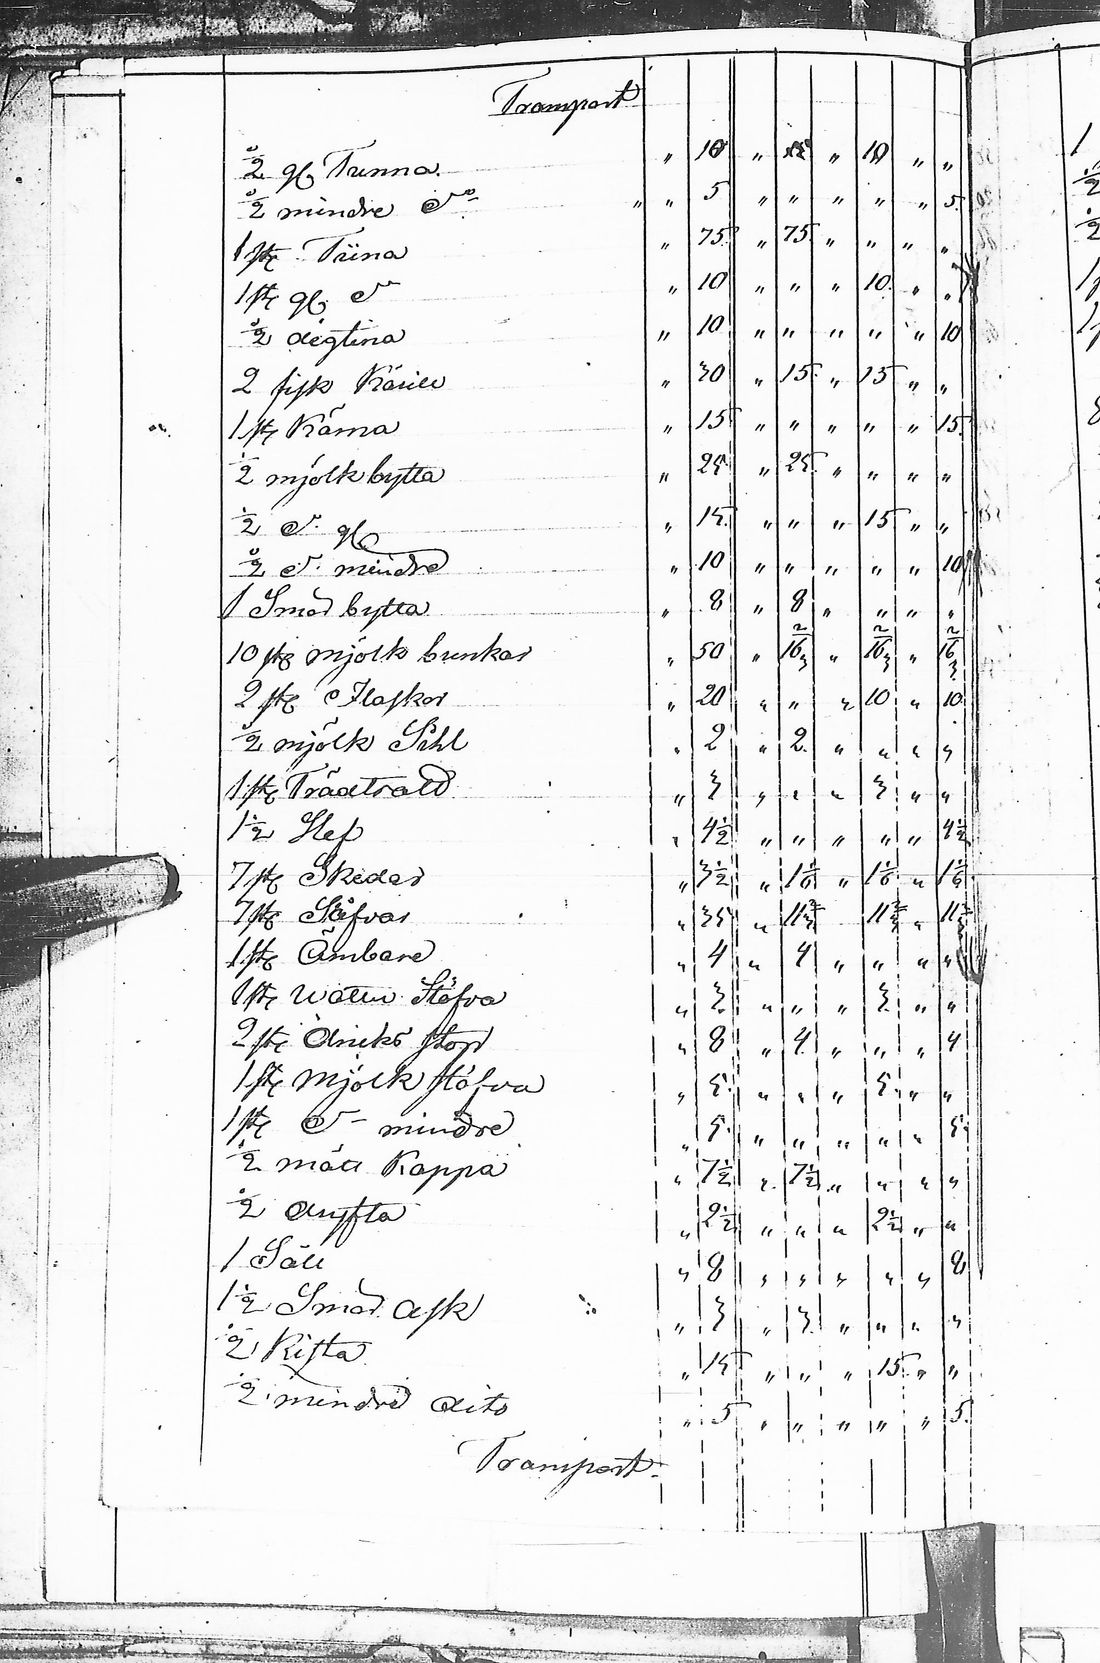 Transport
½ gl Tunna " 10 " " 10 " "
½ mindre Do " " 5 " " " " " 5.
1 st Tiina " 75 " 75 " " " "
1 st gl. Do " 10 " " " 10. " "
½ degtina " 10 " " " " " 10
2 fisk Kärill " 30 " 15. " 15 " "
1 st Kärna " 15 " " " " " 15.
½ mjölk bytta " 25 " 25. " " " "
½ Do gl " 15. " " " 15 " "
½ Do mindre " 10 " " " " " 10
1 Smör bytta " 8 " 8 " " " "
10 st mjölk bunkar " 50 " 16 2/3 " 16 2/3 " 16 2/3
2 st Flaskor " 20 " " " 10 " 10
½ mjölk Sihl " 2 " 2. " " " "
1 st Trädtrald " 3 " " " 3 " "
1 ½ Slef " 4½ " " " " " 4½
7 st Skedar " 3½ " 1 1/6 " 1 1/6 " 1 1/6
7 st Stäfvar " 35 " 11 2/3 11 2/3 " 11 2/3
1 st Ämbare " 4 " 4 " " " "
1 st Watten Stäfva " 3. " " " 3. " "
2 st dricks stop " 8 " 4. " " " 4
1 st Mjölk stäfva " 5. " " " 5. " "
1 st Do mindre " 5. " " " " " 5.
½ mält Kappa " 7½ " 7½ " " " "
½ dryfta " 2½ " " " 2½ " "
1 Såll " 8 " " " " " 8
1 ½ Smör ask " 3 " 3. " " " "
½ Kista " 15 " " " 15 " "
½ mindre dito " 5 " " " " " 5.
Transport